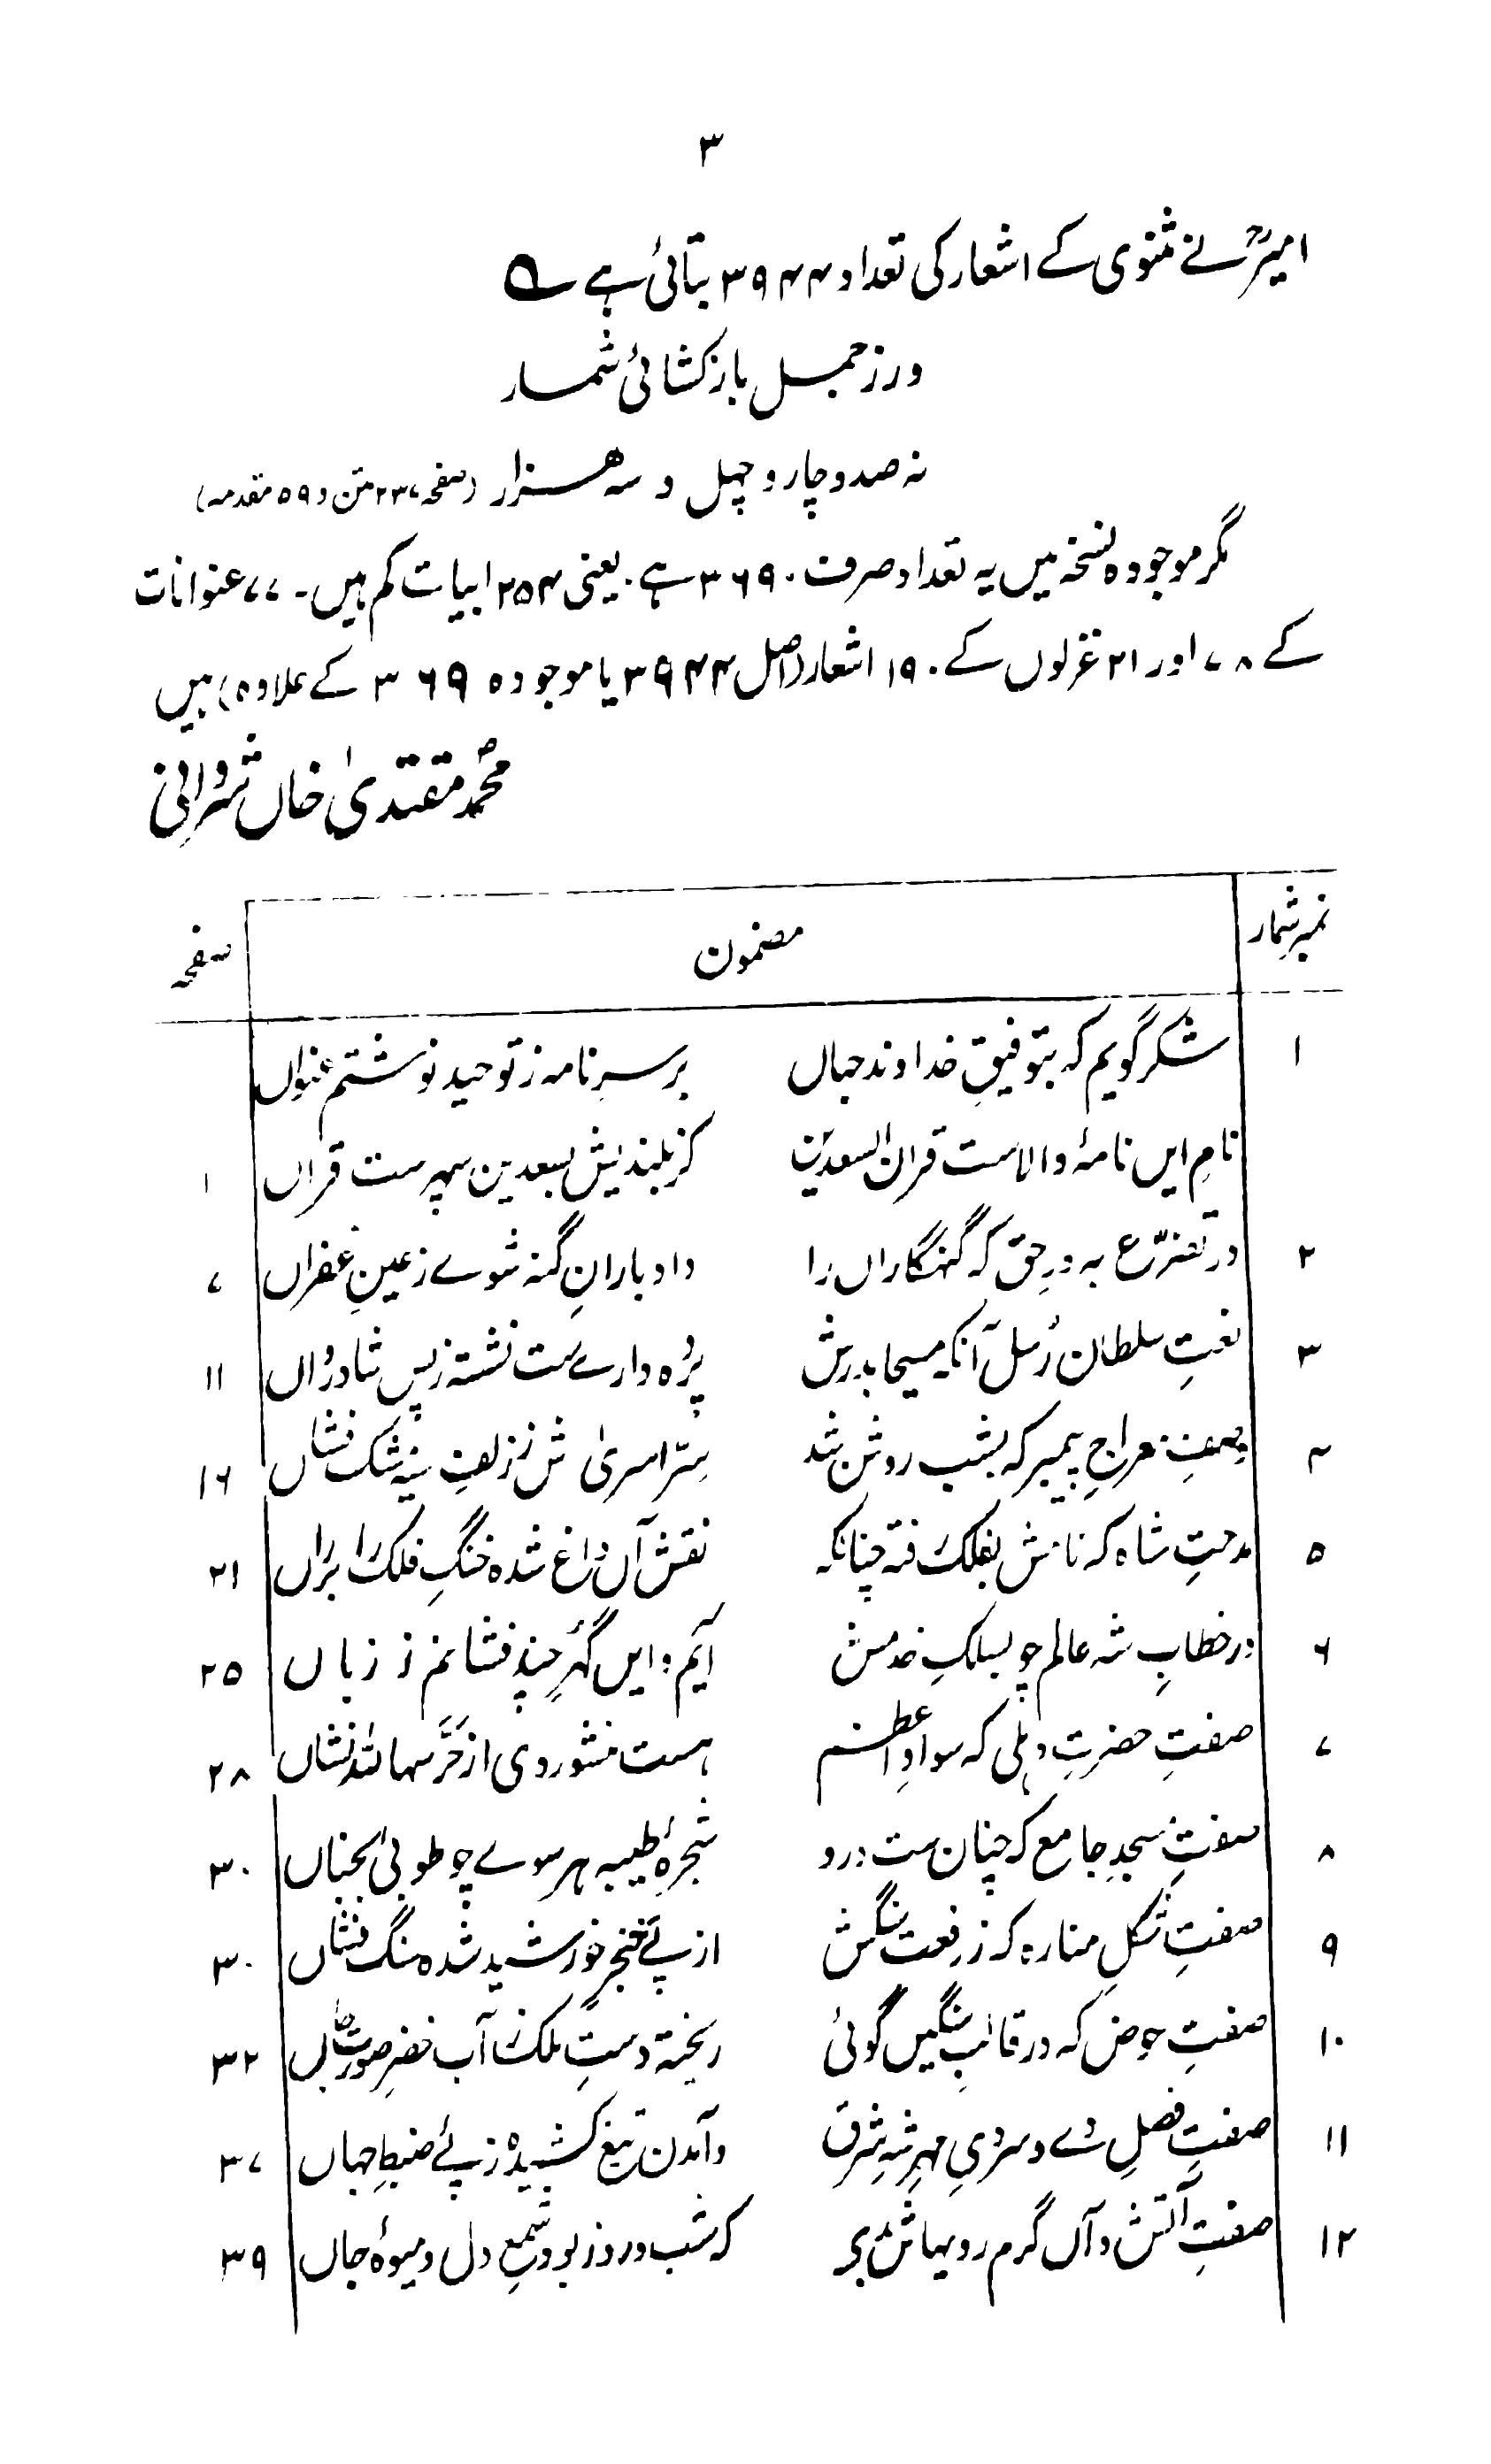 ۳
امیرؒ نے مثنوی کے اشعار کی تعداد ۳۹۴۴ بتائی ہے ؎
ور ز جمل باز کشائی شمار
نہ صد و چار و چہل و سہ هزار (صفحہ ۲۳۷ متن و ۵۹ مقدمہ)
مگر موجودہ نسخہ میں یہ تعداد صرف ۳۶۹۰ ہے۔ یعنی ۲۵۴ ابیات کم ہیں۔ ۷۷ عنوانات
کے ۷۸ اور ۲۱ غزلوں کے ۱۹۰ اشعار (اصل ۳۹۴۴ یا موجودہ ۳۶۹ کے علاوہ) ہیں
محمد مقتدیٰ خاں شروانی
نمبر شمار مضمون صفحہ
۱ شکر گویم کہ بتوفیقِ خداوند جہاں بر سرِ نامہ ز توحید نوشتم عنواں
نامِ ایں نامۂ والاست قران السعدین کز بلندیش بسعدین سپہرست قراں ۱
۲ در تضرّع بہ درِ حق کہ گنہگاراں را داد بارانِ گنہ شوے ز عینِ غفراں ۷
۳ نعتِ سلطان رُسل آنکہ مسیحا بدرش پردہ دارے ست نشستہ ز پسِ شادرواں ۱۱
۴ صفتِ معراجِ پیمبر کہ بشب روشن شد سِرّ اسریٰ ش ز زلفِ سیہ مشک فشاں ۱۶
۵ مدحتِ شاہ کہ نامش بفلک رفتہ چنانکہ نقش آں داغ شدہ خنگِ فلک را بر راں ۲۱
۶ در خطابِ شہ عالم چو بسلکِ خدمش آیم و ایں گہرِ چند فشانم ز زباں ۲۵
۷ صفتِ حضرتِ دہلی کہ سوادِ اعظم ہست منشور وی از حَرَّسہا اللہ نشاں ۲۸
۸ صفتِ مسجدِ جامع کہ چنان ست درو شجرۂ طیبہ ہر سوے چو طوبیٰ بجناں ۳۰
۹ صفتِ شکلِ منارہ کہ ز رفعت سنگش از پئے خنجرِ خورشید شدہ سنگ فشاں ۳۰
۱۰ صفتِ حوض کہ در قالبِ سنگیں گوئی ریختہ دستِ ملک ز آب خضر صورتِ جاں ۳۲
۱۱ صفتِ فصلِ دے و سردیِ مہرِ شہِ شرق و آمدن تیغ کشیدہ ز پئے ضبطِ جہاں ۳۷
۱۲ صفتِ آتش و آں گرم رویہاش بدے کہ شب و روز بود شمعِ دل و میوۂ جاں ۳۹